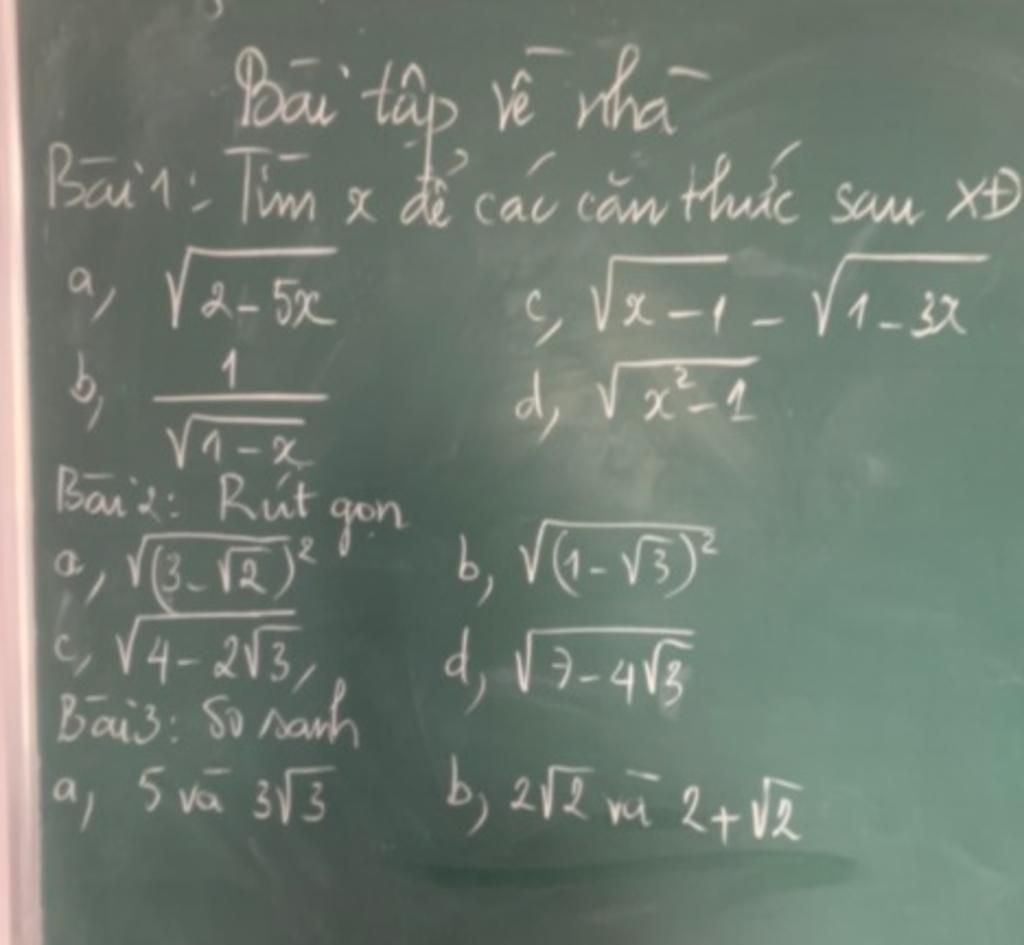 Bài tập về nhà
Bài 1: Tìm x để các căn thức sau XĐ
a, √(2-5x) c, √(x-1) - √(1-3x)
b, 1/√(1-x) d, √(x²-1)
Bài 2: Rút gọn
a, √((3-√2)²) b, √((1-√3)²)
c, √(4-2√3), d, √(7-4√3)
Bài 3: So sánh
a, 5 và 3√3 b, 2√2 và 2+√2